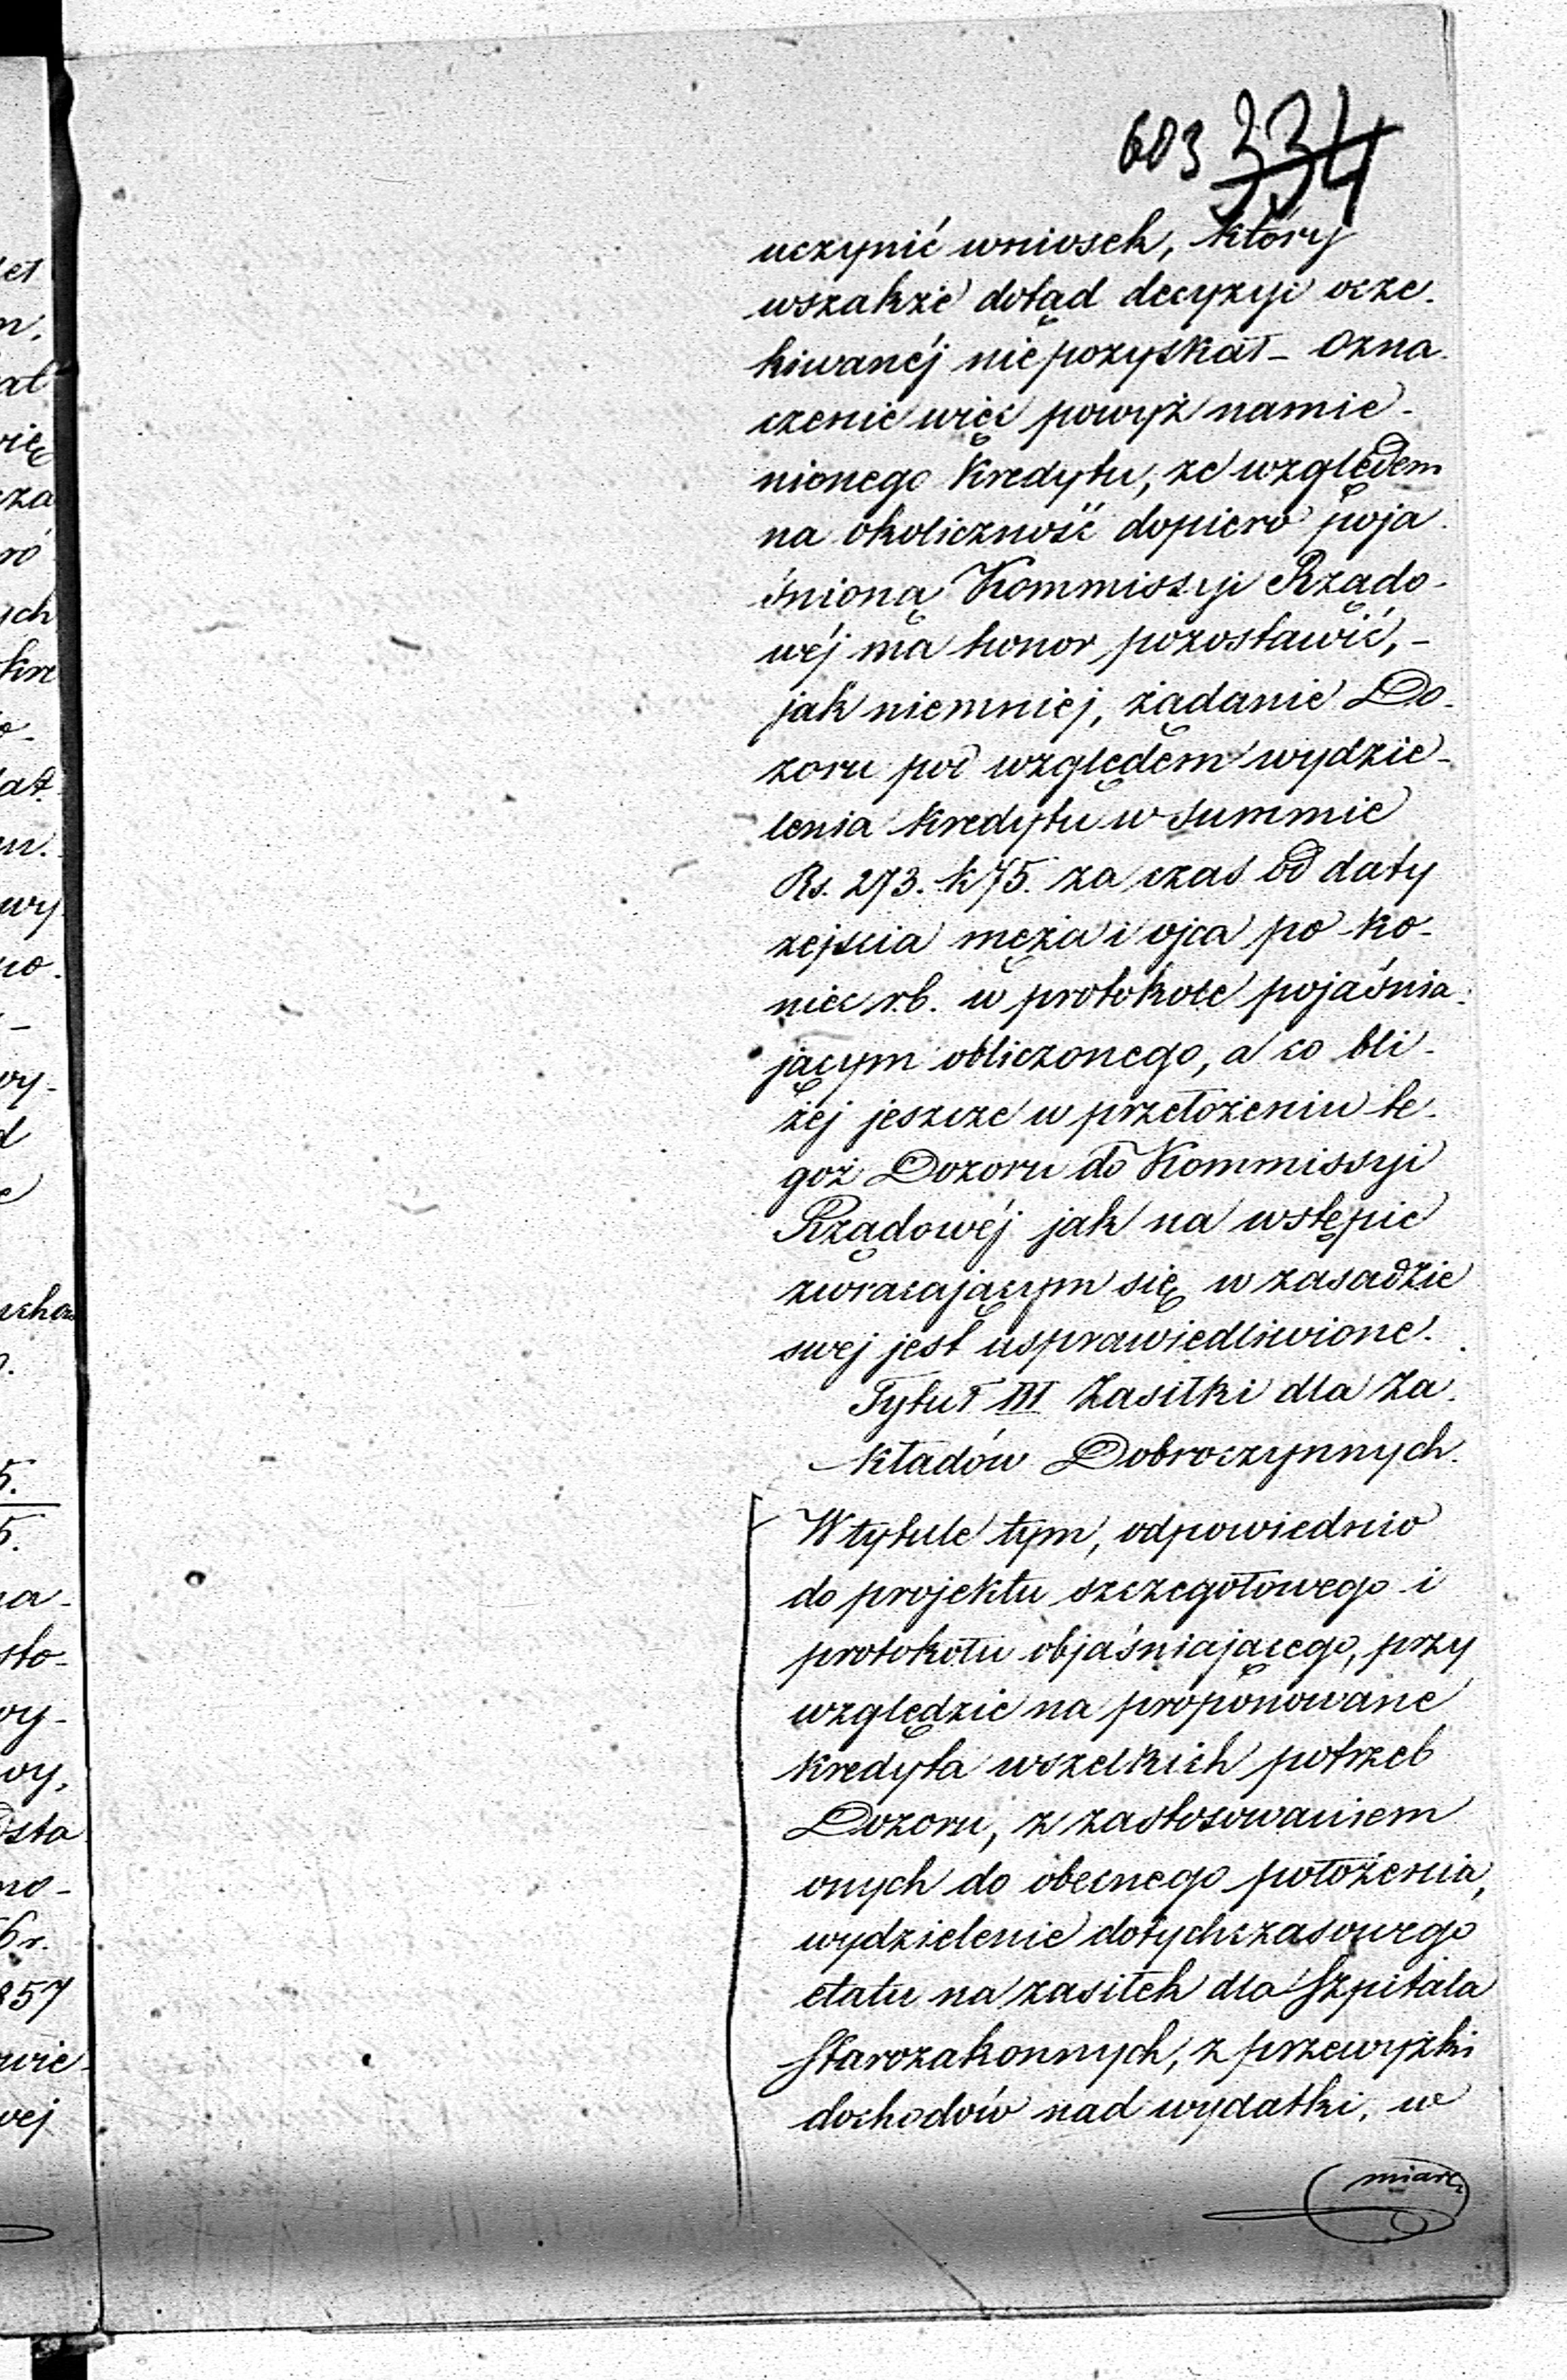 603 334
uczynić wniosek, który
wszakże dotąd decyzyi ocze-
kiwanéj nie pozyskał – Ozna-
czenie więc powyż namie-
nionego kredytu, ze względem
na okoliczność dopiero poja-
śnioną Kommissyi Rządo-
wéj ma honor pozostawić, –
jak niemniej, żądanie Do-
zoru pod względem wydzie-
lenia kredytu w summie
Rs. 273. k 75. za czas od daty
zejścia męża i ojca po ko-
niec r.b. w protokole pojaśnia-
jącym obliczonego, a co bli-
żéj jeszcze w przełożeniu te-
goż Dozoru do Kommissyi
Rządowéj jak na wstępie
zwracającym się, w zasadzie
swej jest usprawiedliwione.
Tytuł III Zasiłki dla Za-
kładów Dobroczynnych.
W tytule tym, odpowiednio
do projektu szczegółowego i
protokołu objaśniającego, przy
względzie na proponowane
kredyta wszelkich potrzeb
Dozoru, z zastosowaniem
onych do obecnego położenia,
wydzielenie dotychczasowego
etatu na zasiłek dla Szpitala
Starozakonnych, z przewyżki
dochodów nad wydatki, w
miarę